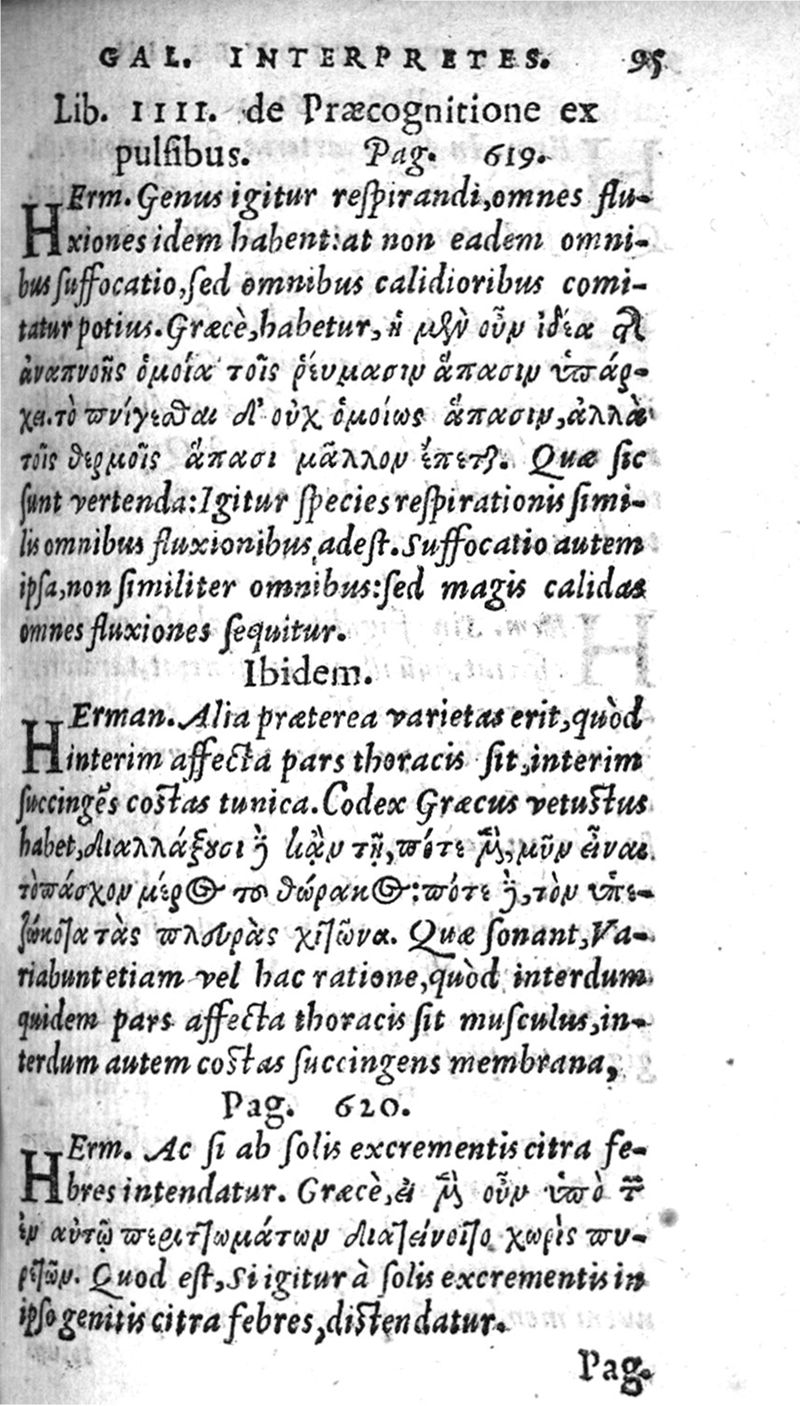 GAL. INTERPRETES. 95
Lib. IIII. de Præcognitione ex
pulſibus. Pag. 619.
HErm. Genus igitur reſpirandi, omnes flu-
xiones idem habent: at non eadem omni-
bus ſuffocatio, ſed omnibus calidioribus comi-
tatur potius. Græcè, habetur, ἡ μὲν οὖν ἰδέα τῆς
ἀναπνοῆς ὁμοία τοῖς ῥεύμασιν ἅπασιν ὑπάρ-
χει. τὸ πνίγεσθαι δ' οὐχ ὁμοίως ἅπασιν, ἀλλὰ
τοῖς θερμοῖς ἅπασι μᾶλλον ἕπεται. Quæ ſic
ſunt vertenda: Igitur ſpecies reſpirationis ſimi-
lis omnibus fluxionibus adeſt. Suffocatio autem
ipſa, non ſimiliter omnibus: ſed magis calidas
omnes fluxiones ſequitur.
Ibidem.
HErman. Alia præterea varietas erit, quòd
interim affecta pars thoracis ſit, interim
ſuccingẽs coſtas tunica. Codex Græcus vetuſtus
habet, διαλλάξουσι δὲ κᾀν τῷ, πότε μὲν, μῦν εἶναι
τὸ πάσχον μέρος τοῦ θώρακος: πότε δὲ, τὸν ὑπε-
ζωκότα τὰς πλευρὰς χιτῶνα. Quæ ſonant, Va-
riabunt etiam vel hac ratione, quòd interdum
quidem pars affecta thoracis ſit muſculus, in-
terdum autem coſtas ſuccingens membrana,
Pag. 620.
HErm. Ac ſi ab ſolis excrementis citra fe-
bres intendatur. Græcè, εἰ μὲν οὖν ὑπὸ τῶν
ἐν αὐτῷ περιττωμάτων διατείνοιτο χωρὶς πυ-
ρετῶν. Quod eſt, Si igitur à ſolis excrementis in
ipſo genitis citra febres, diſtendatur.
Pag.